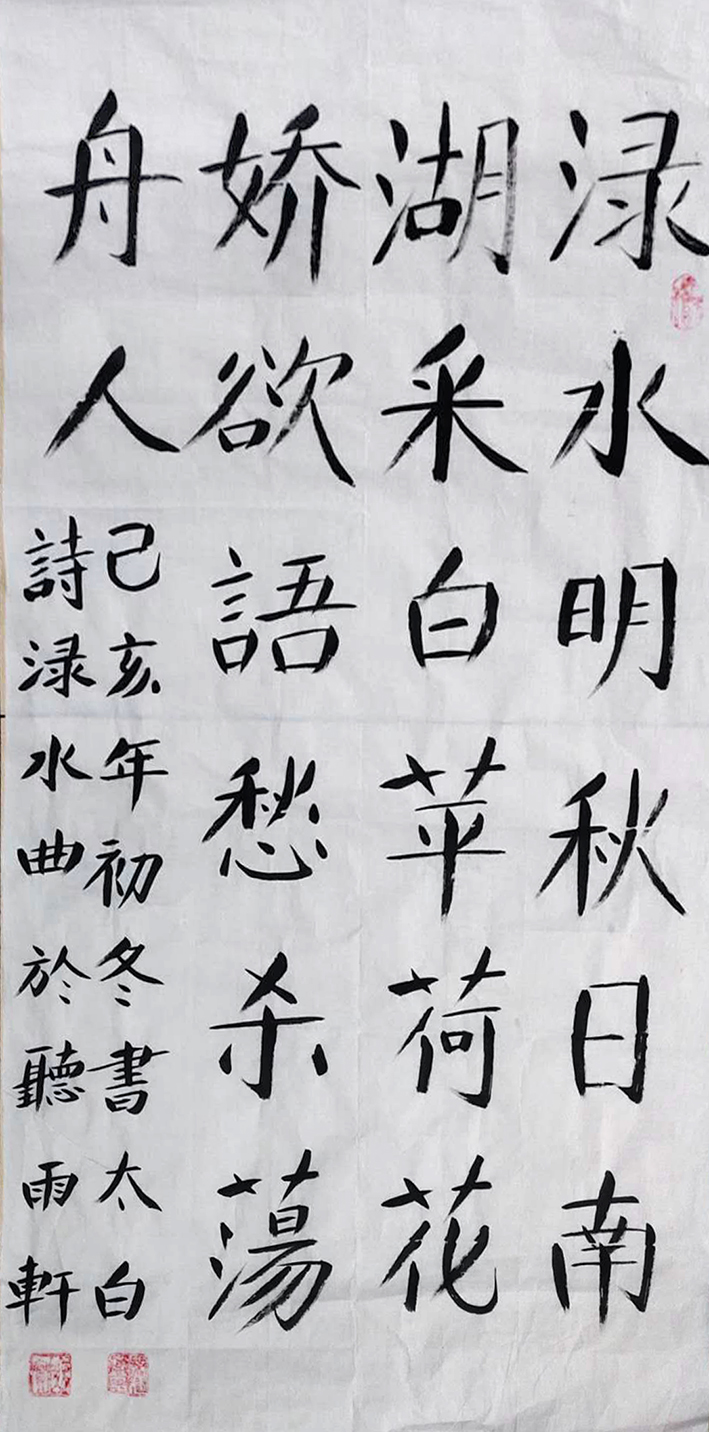 渌水明秋日南
湖采白苹荷花
娇欲語愁杀蕩
舟人
己亥年初冬書太白
詩渌水曲於聽雨軒